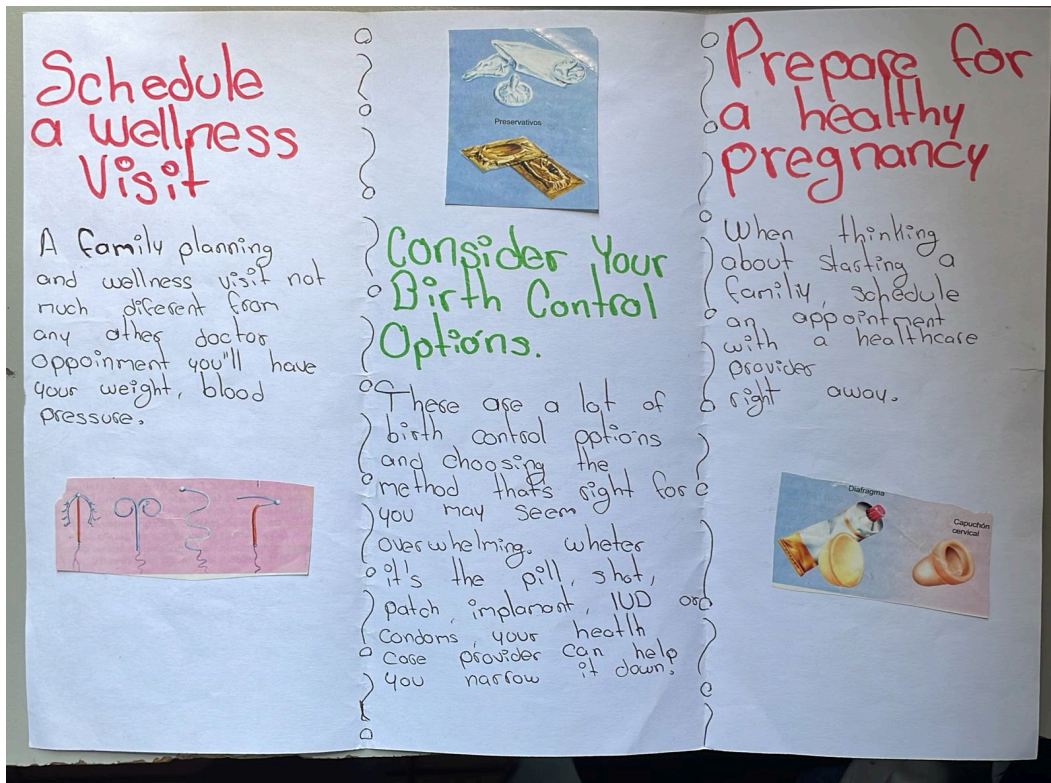 Schedule
a wellness
Visit
A family planning
and wellness visit not
much diferent from
any other doctor
oppoinment you"ll have
your weight, blood
pressure.
Preservativos
Consider Your
Birth Control
Options.
There are a lot of
birth control options
and choosing the
method that's right for
you may seem
overwhelming. wheter
it's the pill, shot,
patch, implamant, IUD or
condoms, your heatlh
care provider can help
you narrow it down!
Prepare for
a healthy
pregnancy
When thinking
about starting a
familiy, schedule
an appointment
with a healthcare
provider
right away.
Diafragma
Capuchón
cervical